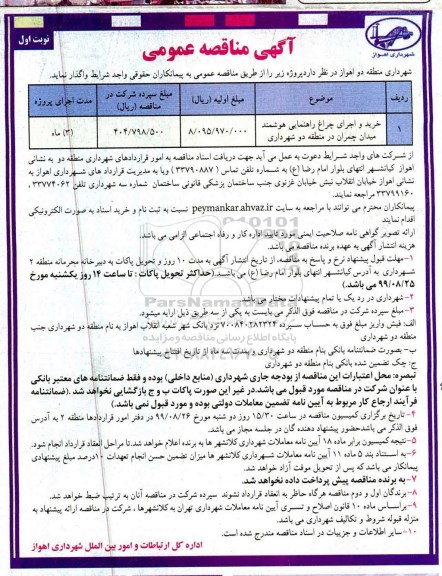 نوبت اول
آگهی مناقصه عمومی
شهرداری اهواز
شهرداری منطقه دو اهواز در نظر دارد پروژه زیر را از طریق مناقصه عمومی به پیمانکاران حقوقی واجد شرایط واگذار نماید.
ردیف موضوع مبلغ اولیه (ریال) مبلغ سپرده شرکت در مناقصه (ریال) مدت اجرای پروژه
۱ خرید و اجرای چراغ راهنمایی هوشمند میدان چمران در منطقه دو شهرداری ۸/۰۹۵/۹۷۰/۰۰۰ ۴۰۴/۷۹۸/۵۰۰ (۳) ماه
از شرکت های واجد شرایط دعوت به عمل می آید جهت دریافت اسناد مناقصه به امور قراردادهای شهرداری منطقه دو به نشانی
اهواز کیانشهر انتهای بلوار امام رضا (ع) به شماره تلفن تماس ( ۳۳۷۹۰۸۸۷ ) ویا به مدیریت قرارداد های شهرداری اهواز به
نشانی اهواز خیابان انقلاب نبش خیابان غزنوی جنب ساختمان پزشکی قانونی ساختمان شماره سه شهرداری تلفن ۳۳۷۷۴۰۶۲ .
۳۳۷۹۹۱۶۰ مراجعه نمایند.
پیمانکاران محترم می توانند با مراجعه به سایت peymankar.ahvaz.ir نسبت به ثبت نام و خرید اسناد به صورت الکترونیکی
اقدام نمایند
ارائه تصویر گواهی نامه صلاحیت ایمنی مورد تایید اداره کار و رفاه اجتماعی الزامی می باشد.
هزینه انتشار آگهی به عهده برنده مناقصه می باشد.
۱-مهلت قبول پیشنهاد نرخ و پاسخ به مناقصه، از تاریخ انتشار آگهی به مدت ۱۰ روز و تحویل پاکات به دبیرخانه محرمانه منطقه ۲
شهرداری به آدرس کیانشهر انتهای بلوار امام رضا (ع) می باشد.(حداکثر تحویل پاکات : تا ساعت ۱۴ روز یکشنبه مورخ
۹۹/۰۸/۲۵ می باشد.)
۲-شهرداری در رد یک یا تمام پیشنهادات مختار می باشد.
۳- مبلغ سپرده شرکت در مناقصه فوق الذکر می بایست به یکی از سه طریق ذیل ارایه میشود
الف: فیش واریز مبلغ فوق به حساب سپرده ۷۰۰۸۴۰۲۸۲۳۲۴ نزد بانک شهر شعبه انقلاب اهواز به نام منطقه دو شهرداری جنب
منطقه دو شهرداری
ب- بصورت ضمانتنامه بانکی بنام منطقه دو شهرداری و بمدت سه ماه از تاریخ افتتاح پیشنهادها
ج: چک تضمین شده بانکی بنام منطقه دو شهرداری
تبصره: محل اعتبارات این مناقصه از بودجه جاری شهرداری (منابع داخلی) بوده و فقط ضمانتنامه های معتبر بانکی
با عنوان شرکت در مناقصه مورد قبول می باشد.در غیر این صورت پاکات ب و ج بازگشایی نخواهد شد .(ضمانتنامه
فرآیند ارجاع کار مربوط به آیین نامه تضمین معاملات دولتی بوده و مورد قبول نمی باشد.)
۴- تاریخ برگزاری کمیسیون مناقصه در ساعت ۱۵/۳۰ روز دو شنبه مورخ ۹۹/۰۸/۲۶ در دفتر امور قراردادها منطقه ۲ به آدرس
فوق الذکر می باشدحضور پیشنهاد دهنده گان در جلسه مجاز می باشد.
۵-نتیجه کمیسیون برابر ماده ۱۸ آیین نامه معاملات شهرداری کلانشهر ها به برنده اعلام خواهد شد.تا مراحل انعقاد قرارداد انجام شود.
۶- به استناد بند ۵ ماده ۱۱ آیین نامه معاملات شهرداری کلانشهر ها میزان تضمین حسن انجام تعهدات ۱۰درصد مبلغ پیشنهادی
پیمانکار می باشد که پس از تحویل موقت آزاد خواهد شد.
۷- به برنده مناقصه پیش پرداخت داده نخواهد شد.
۸-برندگان اول و دوم مناقصه هرگاه حاظر به انعقاد قرارداد نشوند سپرده شرکت در مناقصه آنان به ترتیب ضبط خواهد شد.
۹-براساس ماده ۱۰ قانون اصلاح و تسری آیین نامه معاملات شهرداری تهران به کلانشهرها ، شرکت در مناقصه ارائه پیشنهاد به
منزله قبوله شروط و تکالیف شهرداری می باشد.
۱۰-سایر اطلاعات و جزییات در اسناد مناقصه مندرج شده است.
اداره کل ارتباطات و امور بین الملل شهرداری اهواز